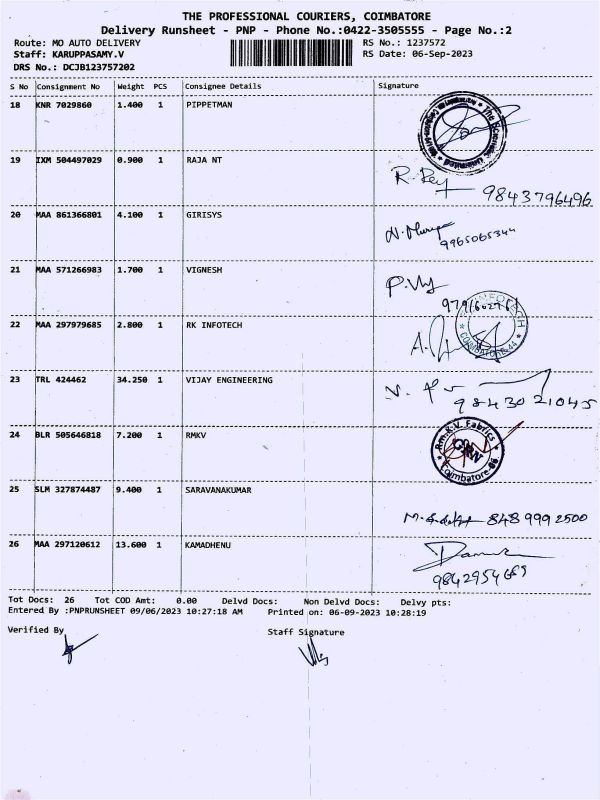 THE PROFESSIONAL COURIERS, COIMBATORE
Delivery Runsheet - PNP - Phone No.:0422-3505555 - Page No.:2
Route: MO AUTO DELIVERY RS No.: 1237572
Staff: KARUPPASAMY.V RS Date: 06-Sep-2023
DRS No.: DCJB123757202
S No Consignment No Weight PCS Consignee Details Signature
18 KNR 7029860 1.400 1 PIPPETMAN
19 IXM 504497029 0.900 1 RAJA NT
9843796496
20 MAA 861366801 4.100 1 GIRISYS
9965065344
21 MAA 571266983 1.700 1 VIGNESH
22 MAA 297979685 2.800 1 RK INFOTECH
COIMBATORE-44
23 TRL 424462 34.250 1 VIJAY ENGINEERING
9843021045
24 BLR 505646818 7.200 1 RMKV
Rm.K.V. Fabrics
GRN
Coimbatore
25 SLM 327874487 9.400 1 SARAVANAKUMAR
8489992500
26 MAA 297120612 13.600 1 KAMADHENU
Tot Docs: 26 Tot COD Amt: 0.00 Delvd Docs: Non Delvd Docs: Delvy pts:
Entered By :PNPRUNSHEET 09/06/2023 10:27:18 AM Printed on: 06-09-2023 10:28:19
Verified By Staff Signature